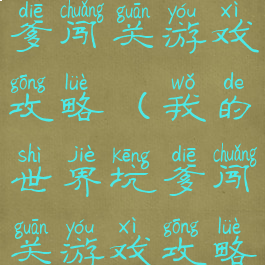 diē chuǎng guān yóu xì
爹闯关游戏
gōng lüè wǒ de
攻略(我的
shì jiè kēng diē chuǎng
世界坑爹闯
guān yóu xì gōng lüè
关游戏攻略